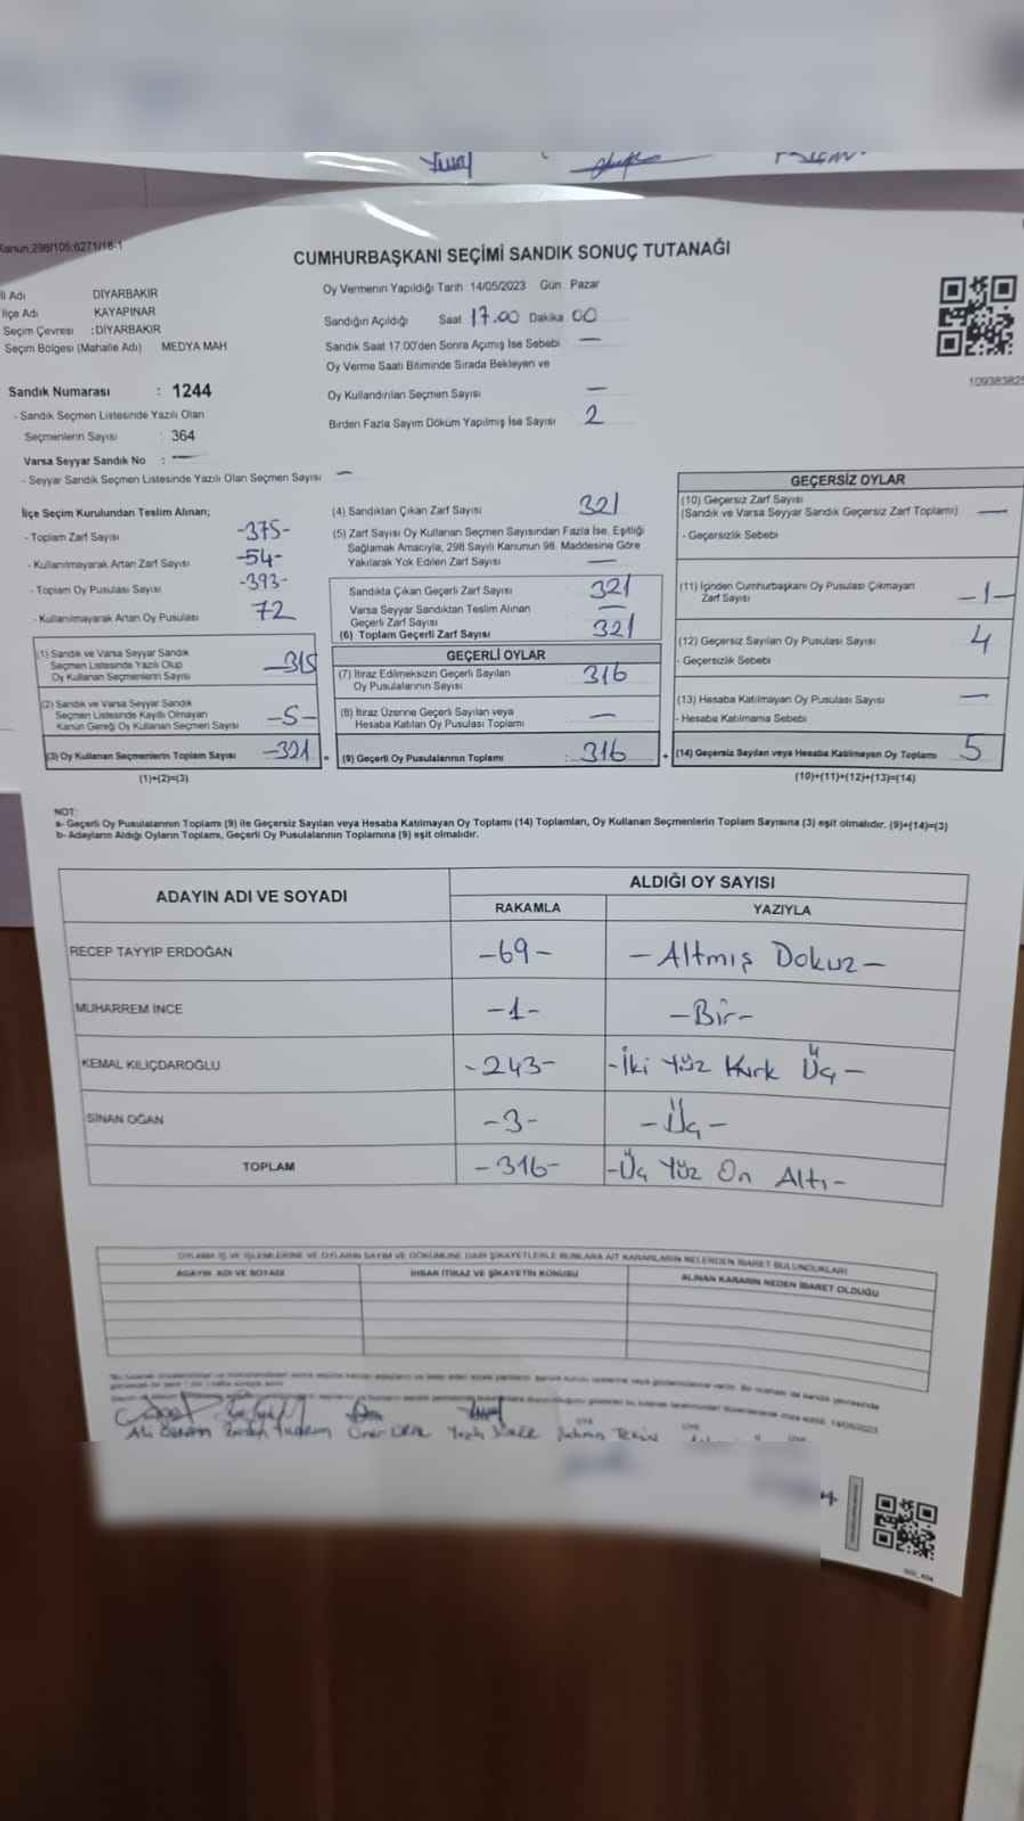 Kanun:298/105;6271/18-1
CUMHURBAŞKANI SEÇİMİ SANDIK SONUÇ TUTANAĞI
İl Adı DİYARBAKIR
İlçe Adı KAYAPINAR
Seçim Çevresi :DİYARBAKIR
Seçim Bölgesi (Mahalle Adı) MEDYA MAH
Sandık Numarası : 1244
- Sandık Seçmen Listesinde Yazılı Olan
Seçmenlerin Sayısı : 364
Varsa Seyyar Sandık No : —
- Seyyar Sandık Seçmen Listesinde Yazılı Olan Seçmen Sayısı —
Oy Vermenin Yapıldığı Tarih 14/05/2023 Gün Pazar
Sandığın Açıldığı Saat 17.00 Dakika 00
Sandık Saat 17.00'den Sonra Açmış İse Sebebi —
Oy Verme Saati Bitiminde Sırada Bekleyen ve
Oy Kullandırılan Seçmen Sayısı —
Birden Fazla Sayım Döküm Yapılmış İse Sayısı 2
İlçe Seçim Kurulundan Teslim Alınan;
- Toplam Zarf Sayısı -375-
- Kullanılmayarak Artan Zarf Sayısı -54-
- Toplam Oy Pusulası Sayısı -393-
- Kullanılmayarak Artan Oy Pusulası 72
(1) Sandık ve Varsa Seyyar Sandık
Seçmen Listesinde Yazılı Olup
Oy Kullanan Seçmenlerin Sayısı
(2) Sandık ve Varsa Seyyar Sandık
Seçmen Listesinde Kayıtlı Olmayan
Kanun Gereği Oy Kullanan Seçmen Sayısı -5-
(3) Oy Kullanan Seçmenlerin Toplam Sayısı -321
(1)+(2)=(3)
(4) Sandıktan Çıkan Zarf Sayısı 321
(5) Zarf Sayısı Oy Kullanan Seçmen Sayısından Fazla İse, Eşitliği
Sağlamak Amacıyla, 298 Sayılı Kanunun 98. Maddesine Göre
Yakılarak Yok Edilen Zarf Sayısı —
Sandıkta Çıkan Geçerli Zarf Sayısı 321
Varsa Seyyar Sandıktan Teslim Alınan
Geçerli Zarf Sayısı —
(6) Toplam Geçerli Zarf Sayısı 321
GEÇERLİ OYLAR
(7) İtiraz Edilmeksizin Geçerli Sayılan
Oy Pusulalarının Sayısı 316
(8) İtiraz Üzerine Geçerli Sayılan veya
Hesaba Katılan Oy Pusulası Toplamı —
(9) Geçerli Oy Pusulalarının Toplamı : 316
GEÇERSİZ OYLAR
(10) Geçersiz Zarf Sayısı
(Sandık ve Varsa Seyyar Sandık Geçersiz Zarf Toplamı) —
- Geçersizlik Sebebi
(11) İçinden Cumhurbaşkanı Oy Pusulası Çıkmayan
Zarf Sayısı -1-
(12) Geçersiz Sayılan Oy Pusulası Sayısı 4
- Geçersizlik Sebebi
(13) Hesaba Katılmayan Oy Pusulası Sayısı —
- Hesaba Katılmama Sebebi
(14) Geçersiz Sayılan veya Hesaba Katılmayan Oy Toplamı 5
(10)+(11)+(12)+(13)=(14)
NOT:
a- Geçerli Oy Pusulalarının Toplamı (9) ile Geçersiz Sayılan veya Hesaba Katılmayan Oy Toplamı (14) Toplamları, Oy Kullanan Seçmenlerin Toplam Sayısına (3) eşit olmalıdır. (9)+(14)=(3)
b- Adayların Aldığı Oyların Toplamı, Geçerli Oy Pusulalarının Toplamına (9) eşit olmalıdır.
ADAYIN ADI VE SOYADI ALDIĞI OY SAYISI
RAKAMLA YAZIYLA
RECEP TAYYIP ERDOĞAN -69- -Altmış Dokuz-
MUHARREM İNCE -1- -Bir-
KEMAL KILIÇDAROĞLU -243- -İki Yüz Kırk Üç-
SİNAN OĞAN -3- -Üç-
TOPLAM -316- -Üç Yüz On Altı-
OYLAMA İŞ VE İŞLEMLERİNE VE OYLARIN SAYIM VE DÖKÜMÜNE DAİR ŞİKAYETLERLE BUNLARA AİT KARARLARIN NELERDEN İBARET BULUNDUKLARI
ADAYIN ADI VE SOYADI İHBAR İTİRAZ VE ŞİKAYETİN KONUSU ALINAN KARARIN NEDEN İBARET OLDUĞU